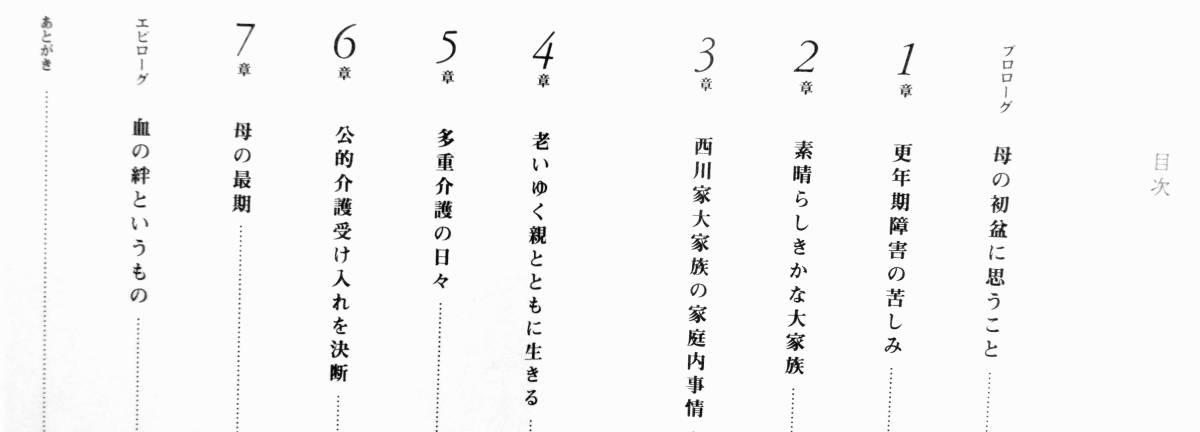 目次
プロローグ 母の初盆に思うこと
1章 更年期障害の苦しみ
2章 素晴らしきかな大家族
3章 西川家大家族の家庭内事情
4章 老いゆく親とともに生きる
5章 多重介護の日々
6章 公的介護受け入れを決断
7章 母の最期
エピローグ 血の絆というもの
あとがき